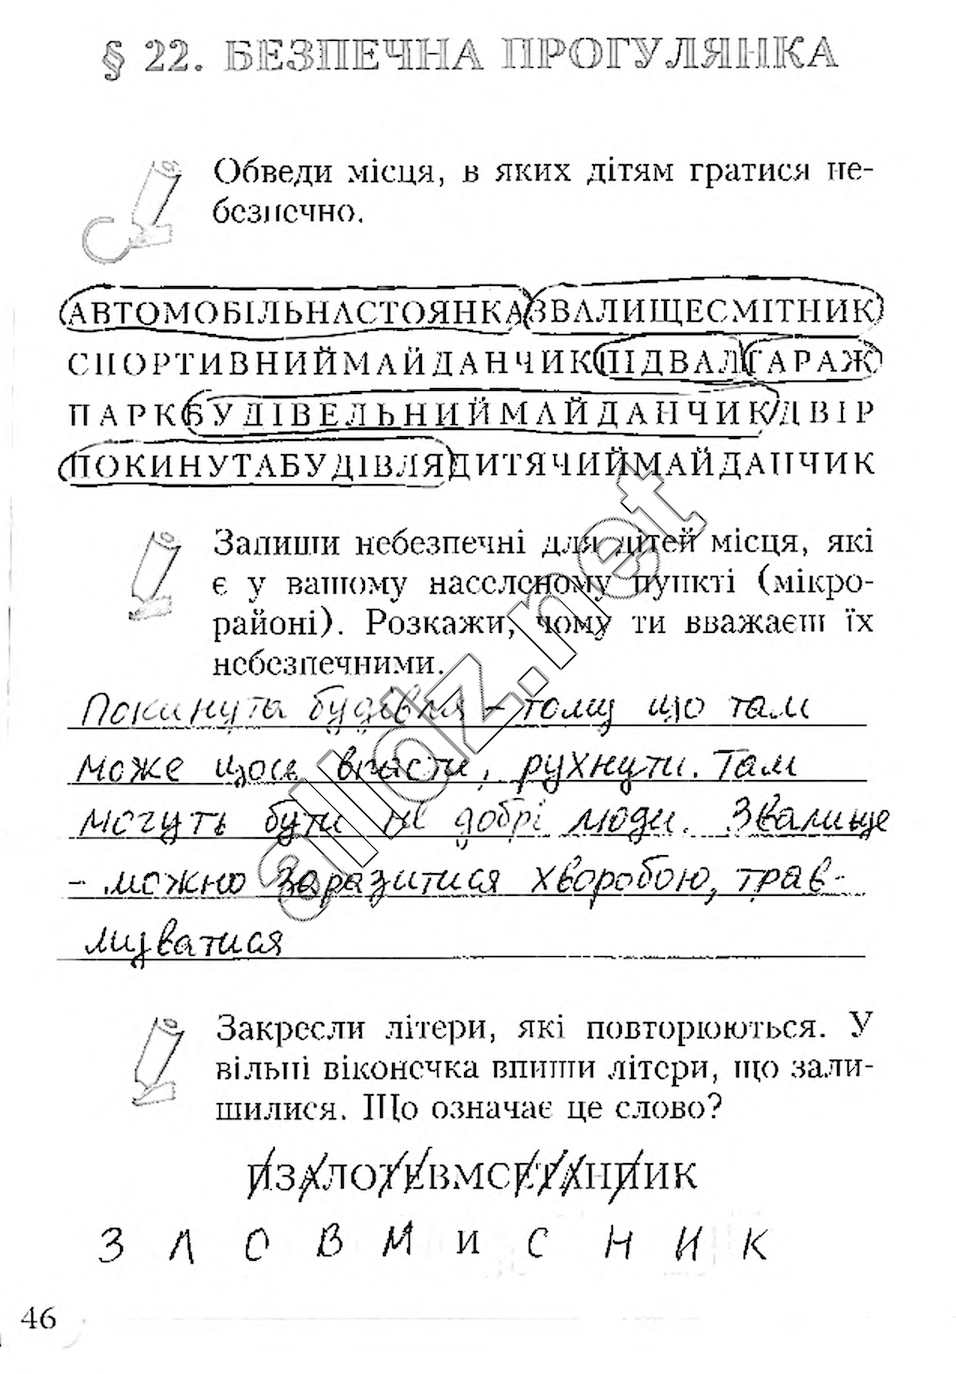 § 22. БЕЗПЕЧНА ПРОГУЛЯНКА
Обведи місця, в яких дітям гратися не-
безпечно.
АВТОМОБІЛЬНАСТОЯНКАЗВАЛИЩЕСМІТНИК
СПОРТИВНИЙМАЙДАНЧИКПІДВАЛГАРАЖ
ПАРКБУДІВЕЛЬНИЙМАЙДАНЧИКДВІР
ПОКИНУТАБУДІВЛЯДИТЯЧИЙМАЙДАНЧИК
Запиши небезпечні для дітей місця, які
є у вашому населеному пункті (мікро-
районі). Розкажи, чому ти вважаєш їх
небезпечними.
Покинута будівля - тому що там
може щось впасти, рухнути. Там
могуть бути не добрі люди. Звалище
- можно заразитися хворобою, трав-
мизватися
Закресли літери, які повторюються. У
вільні віконечка впиши літери, що зали-
шилися. Що означає це слово?
ПЗАЛОТЕВМСЕТАНПИК
З Л О В М И С Н И К
46
alldz.net